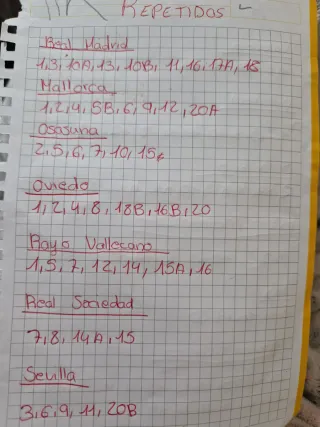 REPETIDOS
Real Madrid
1,3,10A,13,10B, 11,16,17A,18
Mallorca
1,2,4,5B,6,9,12,20A
Osasuna
2,5,6,7,10,15
Oviedo
1,2,4,8,18B,16B,20
Rayo Vallecano
1,5,7,12,14,15A,16
Real Sociedad
7,8,14A,15
Sevilla
3,6,9,11,20B